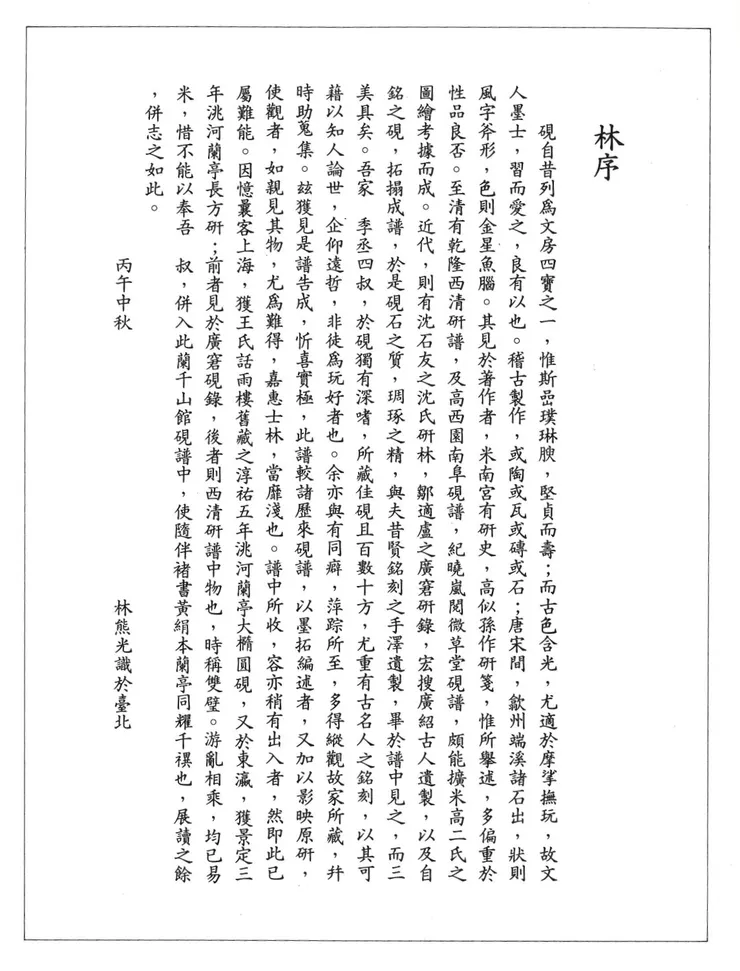 林序
硯自昔列為文房四寶之一，惟斯嵒璞琳腴，堅貞而壽；而古色含光，尤適於摩挲撫玩，故文
人墨士，習而愛之，良有以也。稽古製作，或陶或瓦或磚或石；唐宋間，歙州端溪諸石出，狀則
風字斧形，色則金星魚腦。其見於著作者，米南宮有研史，高似孫作研箋，惟所舉述，多偏重於
性品良否。至清有乾隆西清研譜，及高西園南阜硯譜，紀曉嵐閱微草堂硯譜，頗能擴米高二氏之
圖繪考據而成。近代，則有沈石友之沈氏研林，鄒適廬之廣窘研錄，宏搜廣紹古人遺製，以及自
銘之硯，拓搨成譜，於是硯石之質，琱琢之精，與夫昔賢銘刻之手澤遺製，畢於譜中見之，而三
美具矣。吾家　季丞四叔，於硯獨有深嗜，所藏佳硯且百數十方，尤重有古名人之銘刻，以其可
藉以知人論世，企仰遠哲，非徒為玩好者也。余亦與有同癖，萍踪所至，多得縱觀故家所藏，幷
時助蒐集。玆獲見是譜告成，忻喜實極，此譜較諸歷來硯譜，以墨拓編述者，又加以影映原研，
使觀者，如親見其物，尤為難得，嘉惠士林，當靡淺也。譜中所收，容亦稍有出入者，然即此已
屬難能。因憶曩客上海，獲王氏話雨樓舊藏之淳祐五年洮河蘭亭大橢圓硯，又於東瀛，獲景定三
年洮河蘭亭長方研；前者見於廣窘硯錄，後者則西清研譜中物也，時稱雙璧。游亂相乘，均已易
米，惜不能以奉吾　叔，併入此蘭千山館硯譜中，使隨伴褚書黃絹本蘭亭同耀千禩也，展讀之餘
，併志之如此。
丙午中秋　林熊光識於臺北